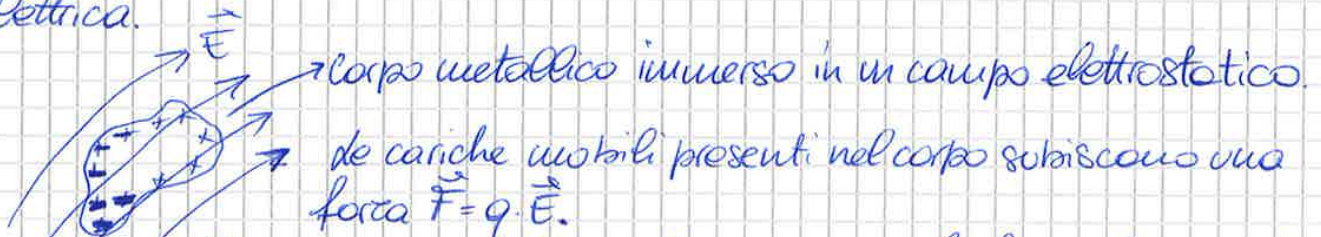 elettrica.
E⃗
Corpo metallico immerso in un campo elettrostatico.
Le cariche mobili presenti nel corpo subiscono una
forza F⃗ = q · E⃗.